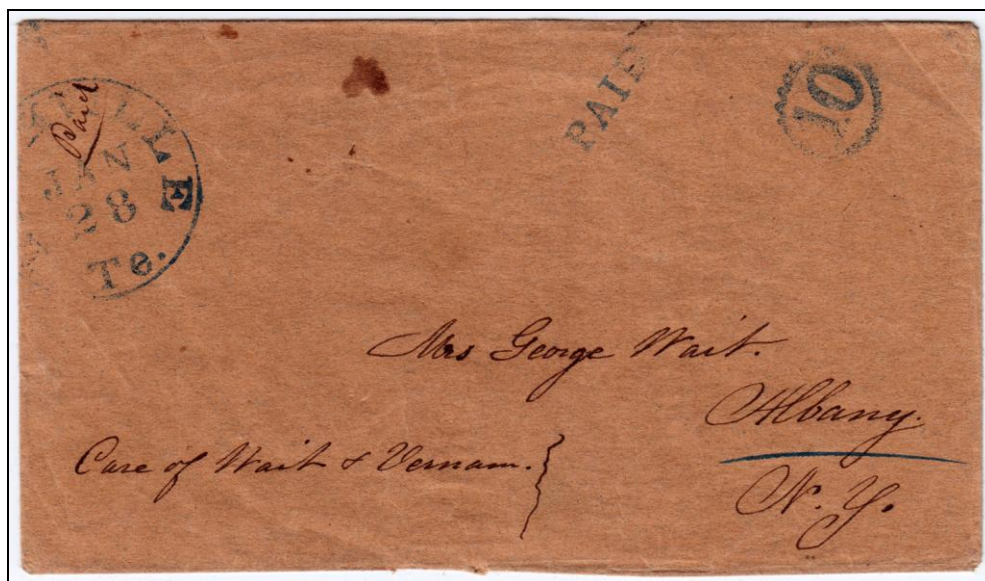 Paid
JAN
28
Te.
PAID
10
Mrs George Wait.
Albany.
Care of Wait & Vernam.
N. Y.